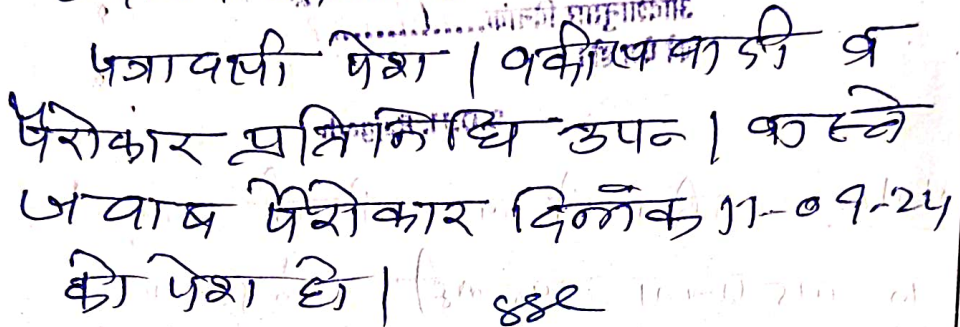 पत्रावली पेश । वकील वादी व
पैरोकार प्रतिनिधि उप० । वास्ते
जवाब पैरोकार दिनांक 11-09-24
को पेश हो ।